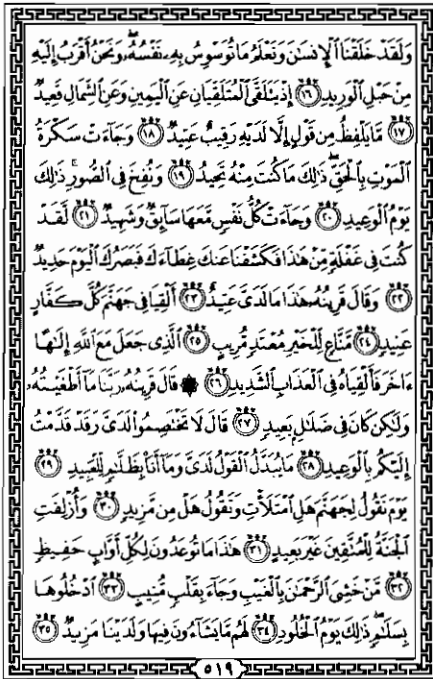 وَلَقَدْ خَلَقْنَا ٱلْإِنسَٰنَ وَنَعْلَمُ مَا تُوَسْوِسُ بِهِۦ نَفْسُهُۥ وَنَحْنُ أَقْرَبُ إِلَيْهِ
مِنْ حَبْلِ ٱلْوَرِيدِ ١٦ إِذْ يَتَلَقَّى ٱلْمُتَلَقِّيَانِ عَنِ ٱلْيَمِينِ وَعَنِ ٱلشِّمَالِ قَعِيدٌ
١٧ مَّا يَلْفِظُ مِن قَوْلٍ إِلَّا لَدَيْهِ رَقِيبٌ عَتِيدٌ ١٨ وَجَآءَتْ سَكْرَةُ
ٱلْمَوْتِ بِٱلْحَقِّ ذَٰلِكَ مَا كُنتَ مِنْهُ تَحِيدُ ١٩ وَنُفِخَ فِى ٱلصُّورِ ذَٰلِكَ
يَوْمُ ٱلْوَعِيدِ ٢٠ وَجَآءَتْ كُلُّ نَفْسٍ مَّعَهَا سَآئِقٌ وَشَهِيدٌ ٢١ لَّقَدْ
كُنتَ فِى غَفْلَةٍ مِّنْ هَٰذَا فَكَشَفْنَا عَنكَ غِطَآءَكَ فَبَصَرُكَ ٱلْيَوْمَ حَدِيدٌ
٢٢ وَقَالَ قَرِينُهُۥ هَٰذَا مَا لَدَىَّ عَتِيدٌ ٢٣ أَلْقِيَا فِى جَهَنَّمَ كُلَّ كَفَّارٍ
عَنِيدٍ ٢٤ مَّنَّاعٍ لِّلْخَيْرِ مُعْتَدٍ مُّرِيبٍ ٢٥ ٱلَّذِى جَعَلَ مَعَ ٱللَّهِ إِلَٰهًا
ءَاخَرَ فَأَلْقِيَاهُ فِى ٱلْعَذَابِ ٱلشَّدِيدِ ٢٦ ۞ قَالَ قَرِينُهُۥ رَبَّنَا مَآ أَطْغَيْتُهُۥ
وَلَٰكِن كَانَ فِى ضَلَٰلٍۭ بَعِيدٍ ٢٧ قَالَ لَا تَخْتَصِمُوا۟ لَدَىَّ وَقَدْ قَدَّمْتُ
إِلَيْكُم بِٱلْوَعِيدِ ٢٨ مَا يُبَدَّلُ ٱلْقَوْلُ لَدَىَّ وَمَآ أَنَا۠ بِظَلَّٰمٍ لِّلْعَبِيدِ ٢٩
يَوْمَ نَقُولُ لِجَهَنَّمَ هَلِ ٱمْتَلَأْتِ وَتَقُولُ هَلْ مِن مَّزِيدٍ ٣٠ وَأُزْلِفَتِ
ٱلْجَنَّةُ لِلْمُتَّقِينَ غَيْرَ بَعِيدٍ ٣١ هَٰذَا مَا تُوعَدُونَ لِكُلِّ أَوَّابٍ حَفِيظٍ
٣٢ مَّنْ خَشِىَ ٱلرَّحْمَٰنَ بِٱلْغَيْبِ وَجَآءَ بِقَلْبٍ مُّنِيبٍ ٣٣ ٱدْخُلُوهَا
بِسَلَٰمٍ ذَٰلِكَ يَوْمُ ٱلْخُلُودِ ٣٤ لَهُم مَّا يَشَآءُونَ فِيهَا وَلَدَيْنَا مَزِيدٌ ٣٥
٥١٩